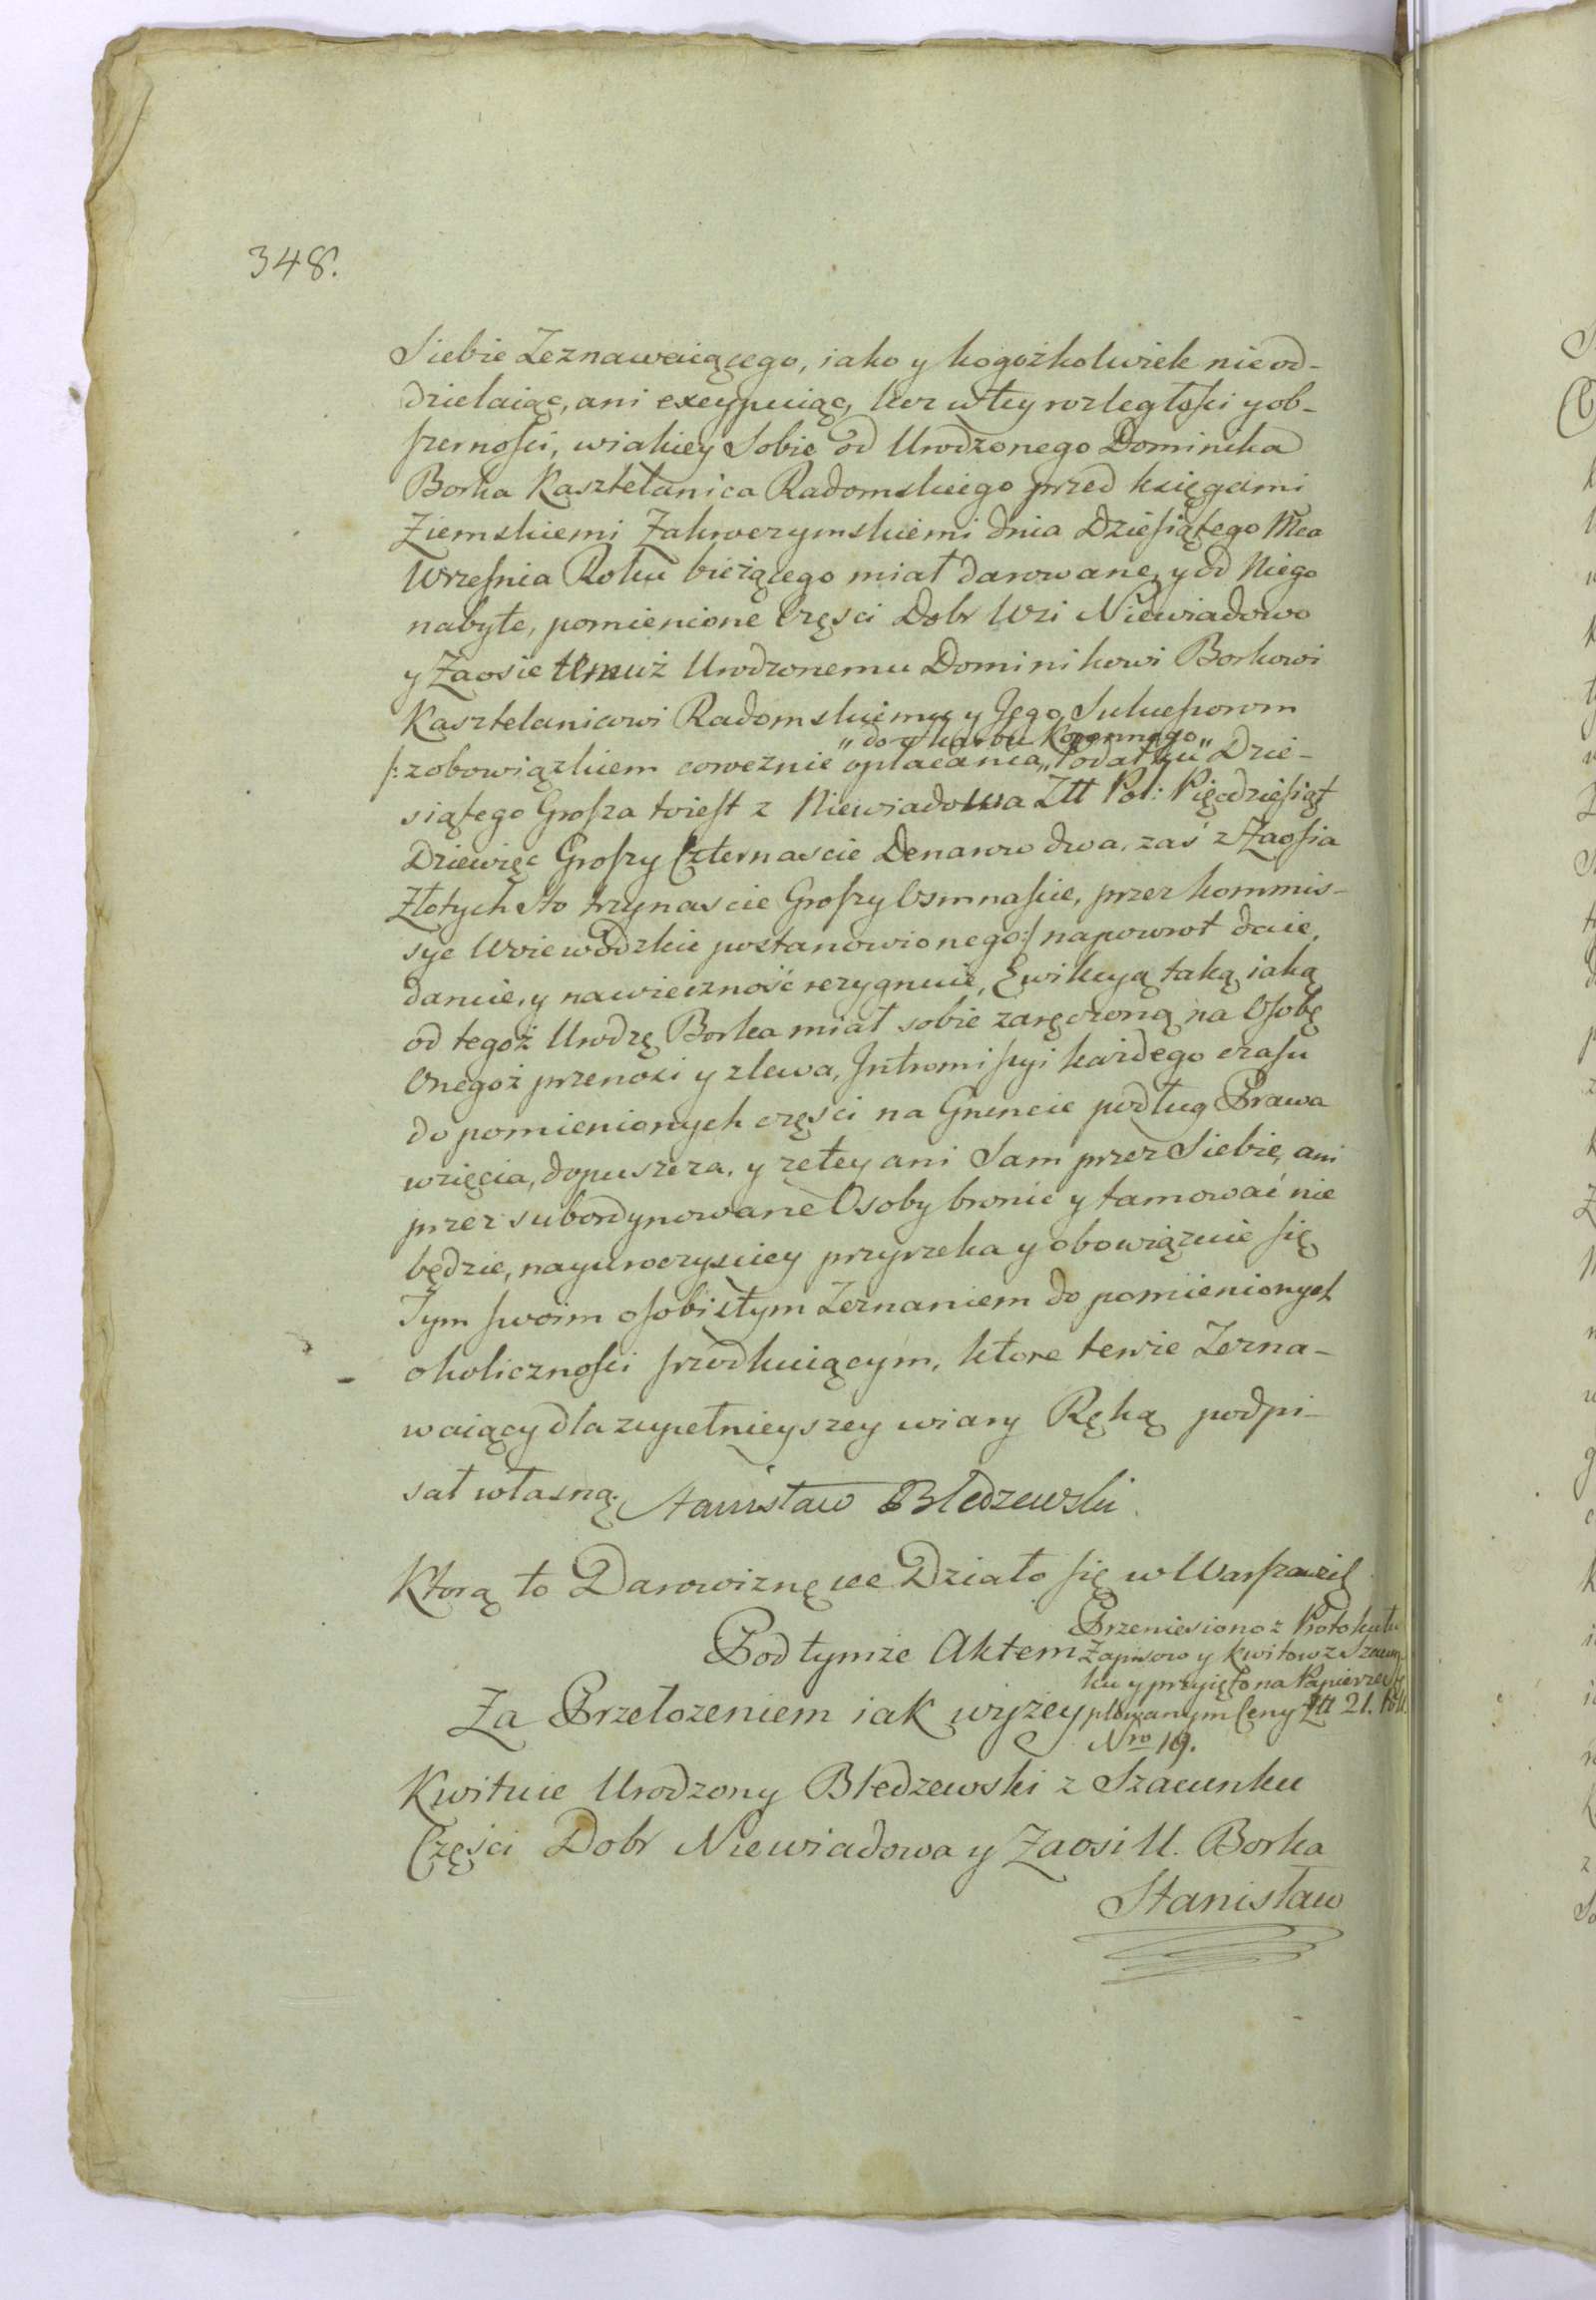 348.
Siebie Zeznawaiącego, iako y kogożkolwiek nieod-
dzielaiąc, ani excypuiąc, lecz w tey rozległości y ob-
szerności, wiakiey Sobie od Urodzonego Dominika
Borka Kasztelanica Radomskiego przed księgami
Ziemskiemi Zakroczymskiemi dnia Dziesiątego Mca
Września Roku bieżącego miał darowane, y od Niego
nabyte, pomienione części Dobr Wsi Niewiadowo
y Zaosie temuż Urodzonemu Dominikowi Borkowi
Kasztelanicowi Radomskiemu y Jego Sukcessorom
„do Skarbu Koronnego
/: z obowiązkiem corocznie opłacania „Podatku" Dzie-
siątego Grosza toiest z Niewiadowa Złł Pol: Pięćdziesiąt
Dziewięc Groszy Czternascie Denarow dwa, zaś z Zaosia
Złotych sto trzynascie Groszy Osmnaście, przez kommis-
sye Woiewodzkie postanowionego:/ napowrot daie,
daruie, y nawieczność rezygnuie, Ewikcyą taką iaką
od tegoż Urodzę Borka miał sobie zaręczoną na Osobę
Onegoż przenosi y zlewa, Intromissyi każdego czasu
do pomienionych części na Gruncie podług Prawa
wzięcia, dopuszcza, y zetey ani Sam przez Siebie, ani
przez subordynowane Osoby bronić y tamować nie
będzie, nayuroczyściey przyrzeka y obowiązuie się
Tym swoim osobistym Zeznaniem do pomienionych
okoliczności srzodkuiącym, ktore tenże Zezna-
waiący dla zupełnieyszey wiary Ręką podpi-
sał własną. Stanisław Błedzewski
Ktorą to Darowiznę etc Działo się w Warszawie
Pod tymże Aktem
Przeniesiono z Protokułu
Zapisow y kwitow z Szacun-
ku y przyięto na Papierze stę-
plowanym Ceny Złł 21. Pol.
Nro 19.
Za Przełozeniem iak wyżey
Kwituie Urodzony Błedzewski z Szacunku
Części Dobr Niewiadowa y Zaosi U. Borka
Stanisław